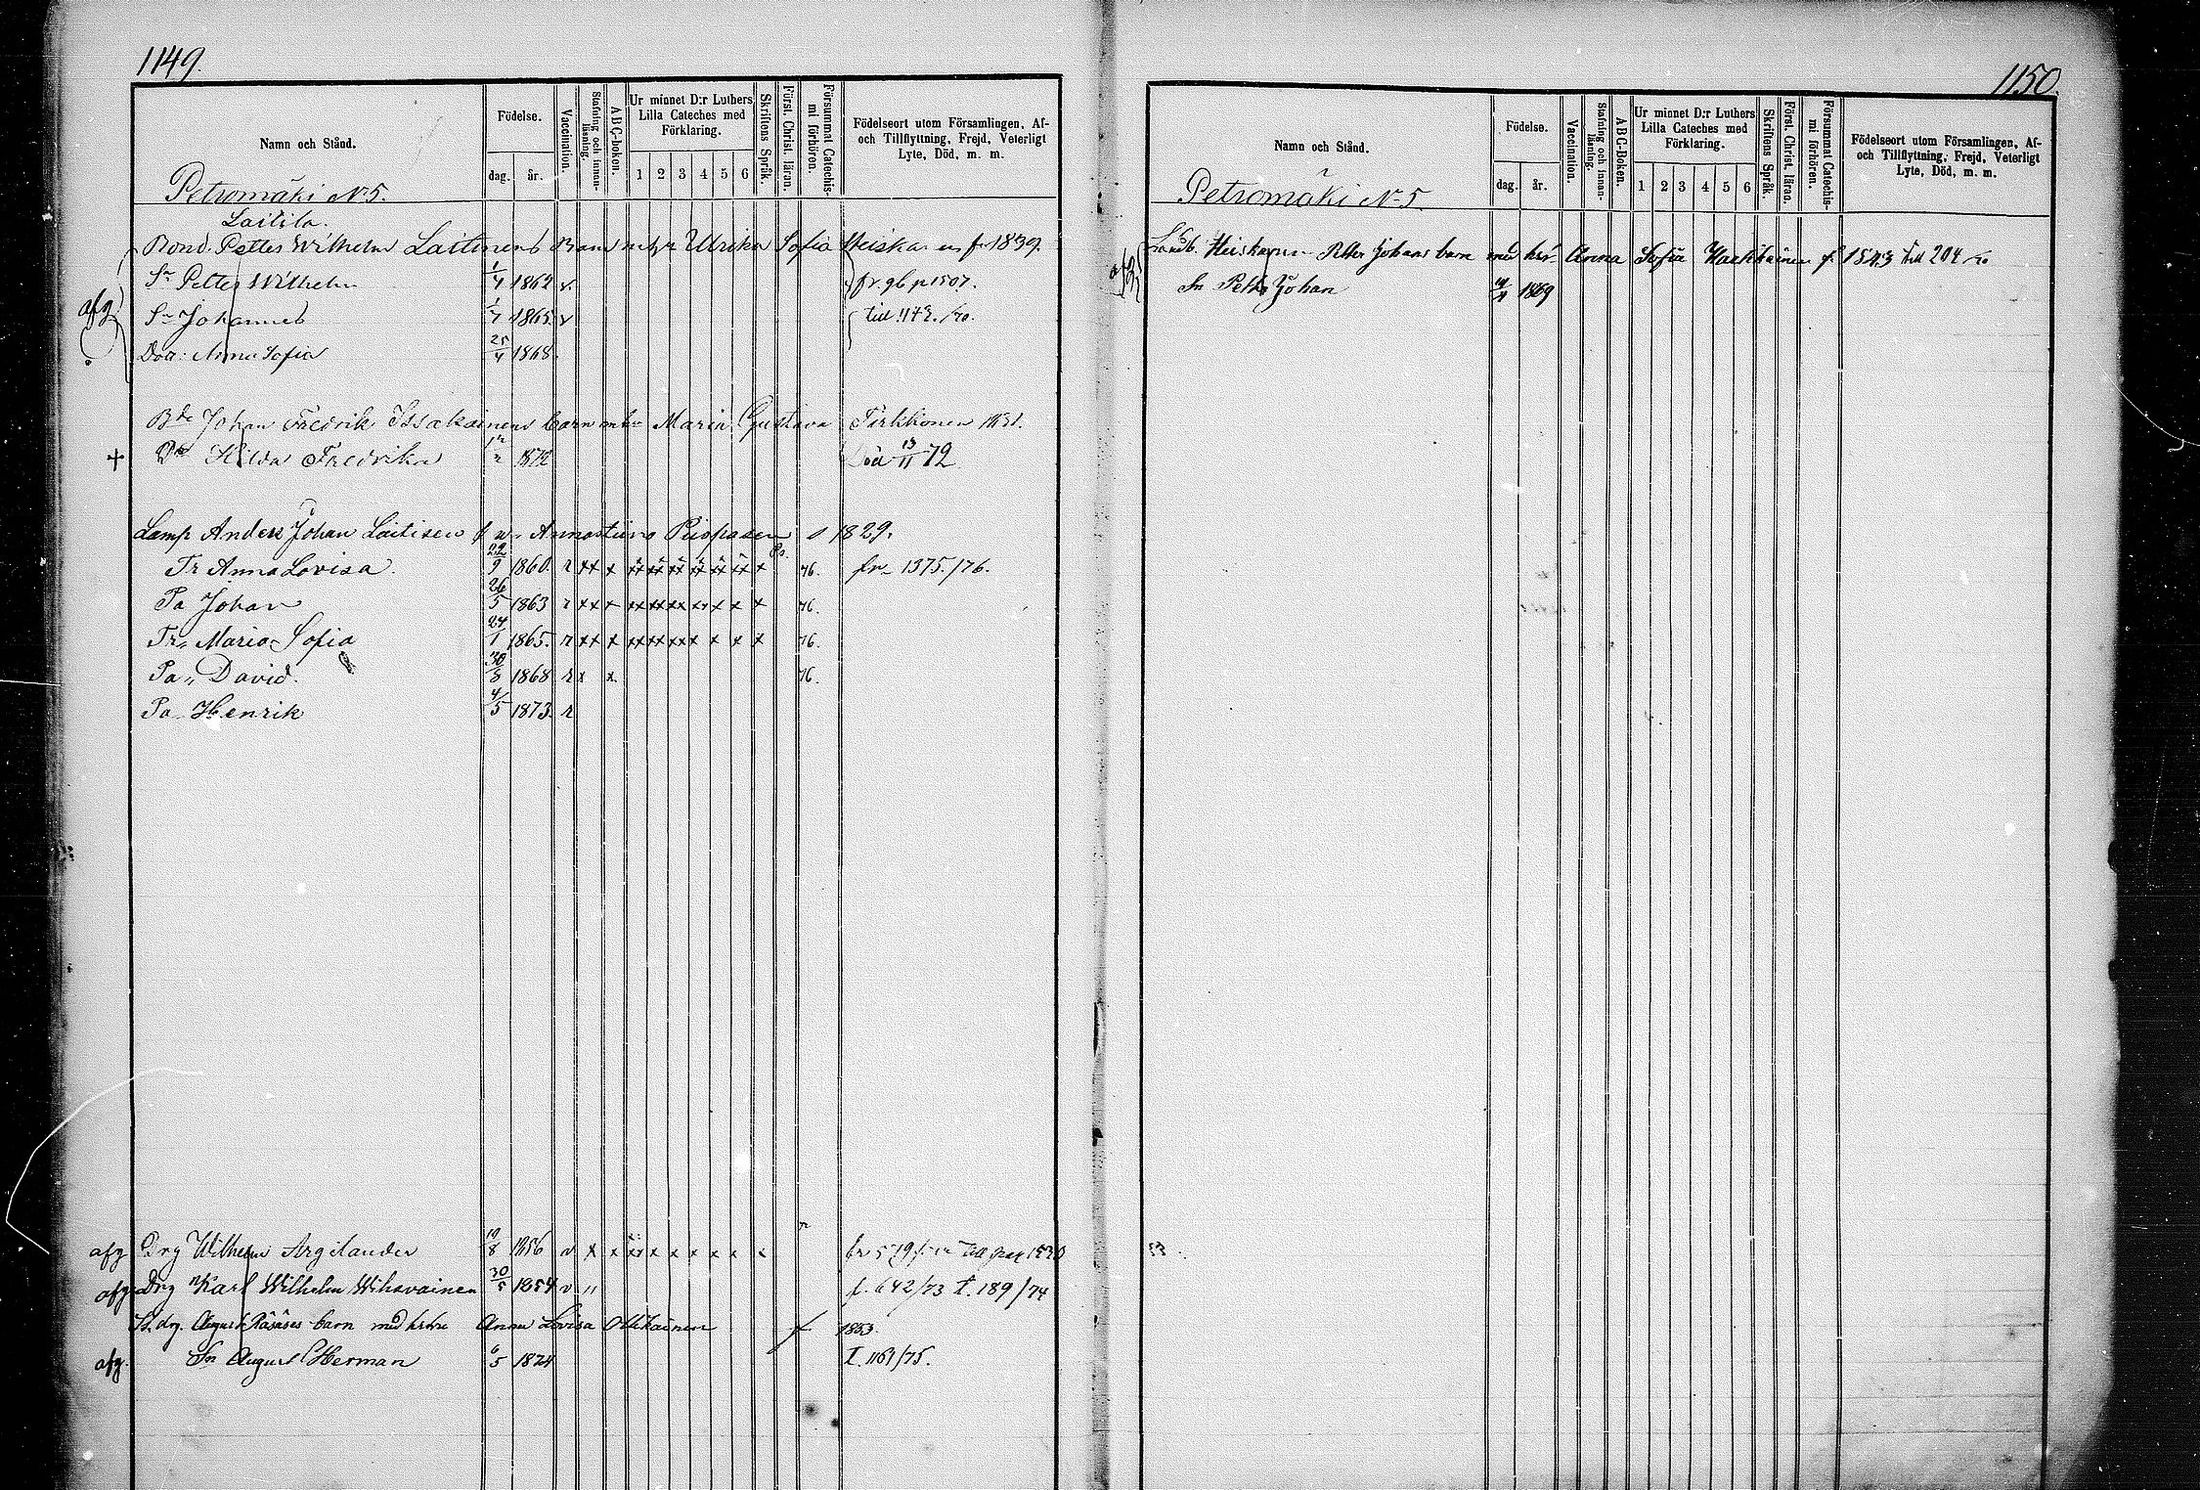 1149.
Namn och Stånd.
Födelse.
dag. år.
Vaccination.
Stafning och innanläsning.
A B C-boken.
Ur minnet D:r Luthers Lilla Cateches med Förklaring.
1 2 3 4 5 6
Skriftens Språk.
Först. Christ. läran.
Försummat Catechismi förhören.
Födelseort utom Församlingen, Af- och Tillflyttning, Frejd, Veterligt Lyte, Död, m. m.
Petromäki N 5.
Laitila.
Bond. Petter Wilhelm Laitinens Barn Ulrika Sofia Heiska 1839.
afg Sn Petter Wilhelm 1/4 1862 v fr. gb p 1507.
Sn Johannes 1/7 1865 v till 1142.
Dott: Anna Sofia 25/4 1868.
Bde Johan Fredrik Issakainens barn Maria Gustava Tirkkonen 1831.
+ Hilda Fredrika 1872 Död 13/11 72
Lamp Anders Johan Laitisen Annastiina Piispasen s 1829.
Tr Anna Lovisa. 22/9 1860. r xx x x 76. fr. 1375./76.
Pa Johan 26/5 1863 r xx x x 76.
Tr. Maria Sofia 24/1 1865. r xx x x 76.
Pa. David. 30/8 1868 r x x 76.
Pa. Henrik 4/5 1873. r
afg Drg Wilhelm Argilander 19/8 1856 v x x x x x x x x fr 579
afg Drg Karl Wilhelm Wihavainen 30/5 1854 v " f. 642/73 T. 189/74
drg. August Räsäses barn med hstru Anna Lovisa Ollikainen f 1853.
afg. Sn August Herman 6/5 1874 T. 1161/75.
1150.
Namn och Stånd.
Födelse.
dag. år.
Vaccination.
Stafning och innanläsning.
A B C-Boken.
Ur minnet D:r Luthers Lilla Cateches med Förklaring.
1 2 3 4 5 6
Skriftens Språk.
Först. Christ. läran.
Försummat Catechismi förhören.
Födelseort utom Församlingen, Af- och Tillflyttning, Frejd, Veterligt Lyte, Död, m. m.
Petromäki N 5.
Heiskasen Petter Johans barn med hst. Anna Sofia f. 1843 till 204
Sn Petter Johan 1869